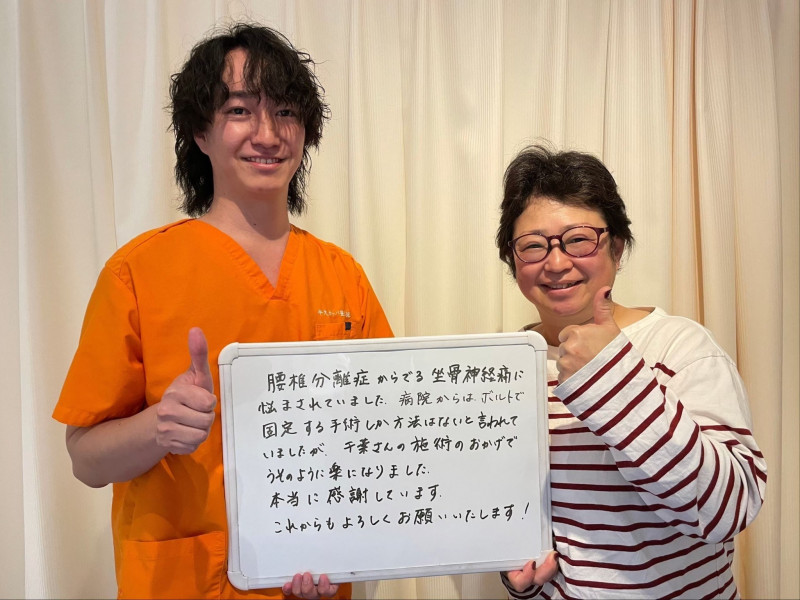 腰椎分離症からでる坐骨神経痛に
悩まされていました。病院からはボルトで
固定する手術しか方法はないと言われて
いましたが、千葉さんの施術のおかげで
うそのように楽になりました。
本当に感謝しています。
これからもよろしくお願いいたします!